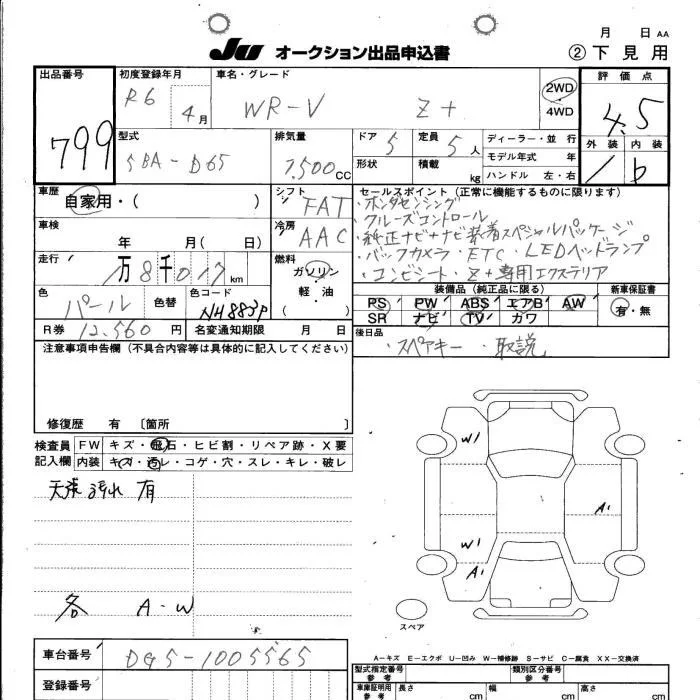 月 日 AA
JU オークション出品申込書 ②下見用
出品番号 初度登録年月 車名・グレード 評価点
799 R6 4月 WR-V Z+ 2WD 4WD 4.5
外装 内装
1 b
型式 排気量 ドア 5 定員 5人 ディーラー・並行
5BA-DG5 1,500cc 形状 積載 kg モデル年式 年
ハンドル 左・右
車歴 自家用・( ) シフト FAT セールスポイント(正常に機能するものに限ります)
・ホンダセンシング
・クルーズコントロール
・純正ナビ+ナビ装着スペシャルパッケージ
・バックカメラ・ETC・LEDヘッドランプ
・コンビシート・Z+専用エクステリア
車検 年 月( 日) 冷房 AAC
走行 万8千017km 燃料 ガソリン・軽・油( )
色 パール 色替 色コード NH883P
装備品(純正品に限る) 新車保証書
PS PW ABS エアB AW 有・無
SR ナビ TV カワ
R券 12,560円 名変通知期限 月 日
後日品
・スペアキー・取説
注意事項申告欄(不具合内容等は具体的に記入してください)
修復歴 有 〔箇所 〕
検査員 FW キズ・飛石・ヒビ割・リペア跡・X要
記入欄 内装 キズ・汚レ・コゲ・穴・スレ・キレ・破レ
天張汚れ有
W1
A1
W1
A1
各 A・W
スペア
A-キズ E-エクボ U-凹み W-補修跡 S-サビ C-腐食 XX-交換済
車台番号 DG5-1005565
登録番号
型式指定番号 参考 類別区分番号 参考
車庫証明用 参考 長さ cm 幅 cm 高さ cm